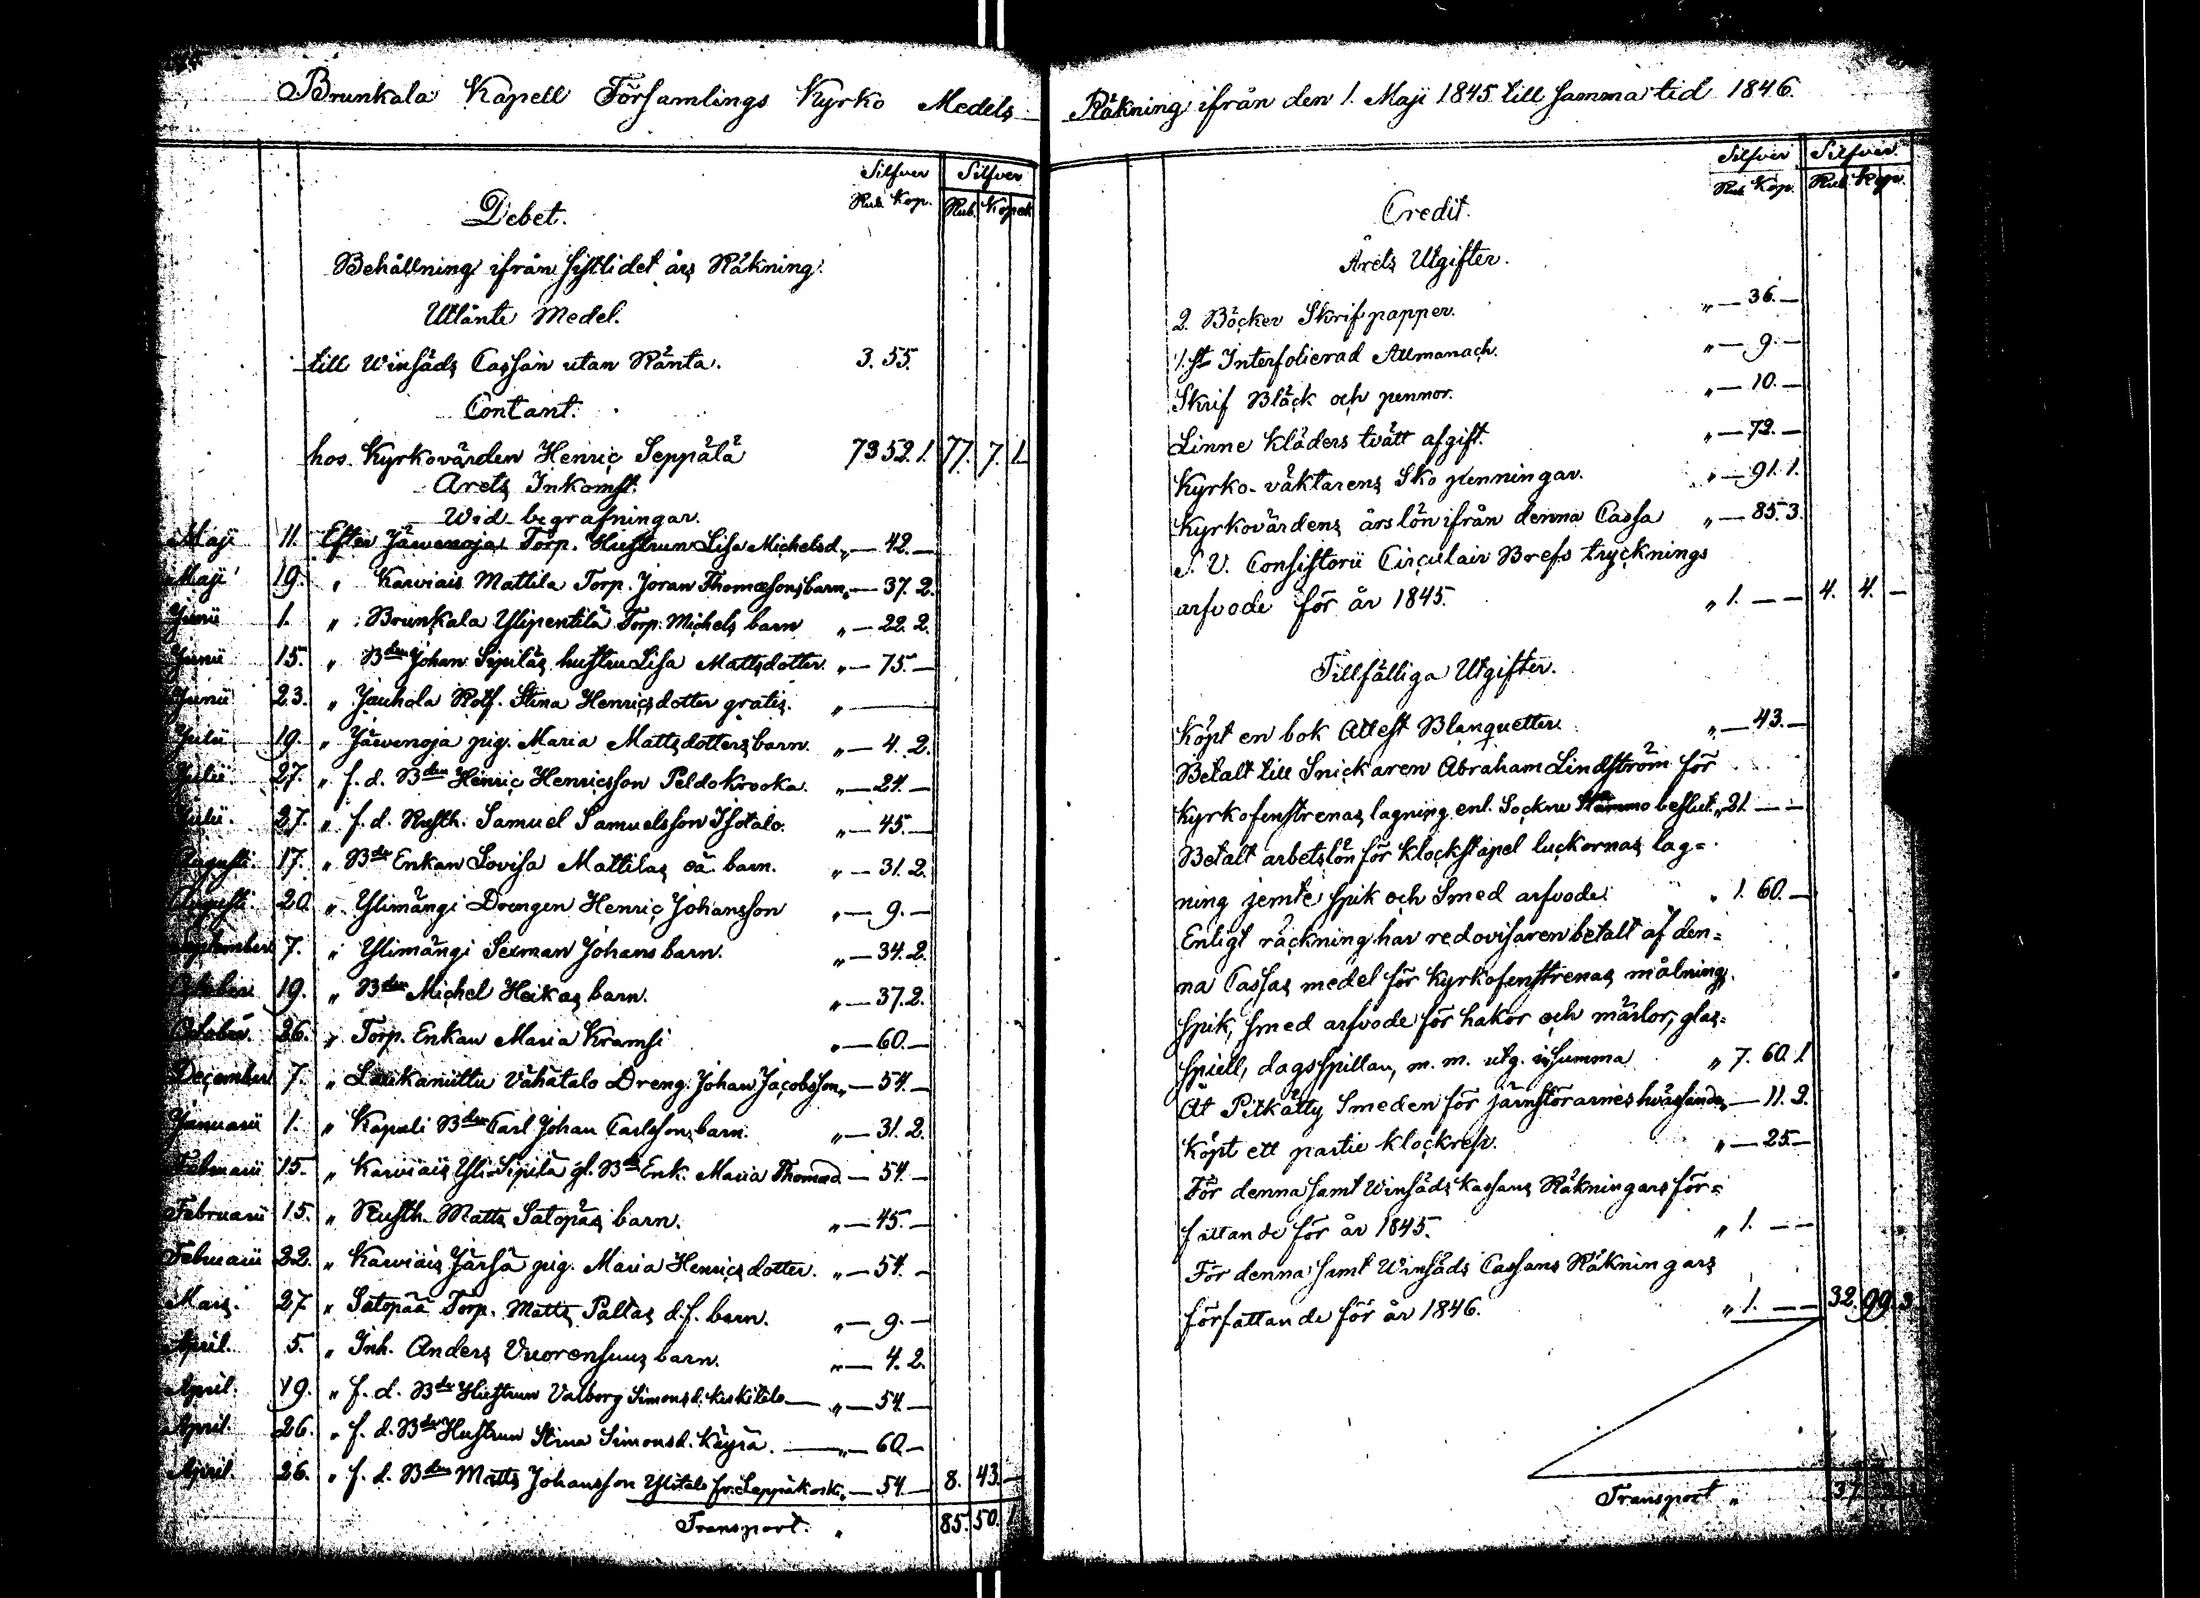 Brunkala Kapell Församlings Kyrko Medels
Silfver Silfver
Rub. Kop. Rub. Kopek
Debet.
Behållning ifrån sistlidet års Räkning.
Utlänte Medel.
till Winsäds Cassan utan Ränta. 3. 55.
Contant.
hos Kyrkovärden Henric Seppälä 73 52. 1. 77. 7. 1.
Arets Inkomst.
Wid begrafningar.
Maji 11. Efter Järvenoja Torp. Hustrun Lisa Michelsd. „ — 42. —
Maji 19. „ Karviais Mattila Torp. Joran Thomæsons barn „ — 37. 2.
Junii 1. „ Brunkala Ylipentilä Torp. Michels barn „ — 22. 2.
Junii 15. „ Bden Johan Sipiläs hustru Lisa Mattsdotter „ — 75. —
Junii 23. „ Jauhola Rotf. Stina Henricsdotter gratis. „ —
Julii 19. „ Järvenoja pig. Maria Mattsdotters barn. „ — 4. 2.
Julii 27. „ f. d. Bden Henric Henricsson Peldokrooka. „ — 24. —
Julii 27. „ f. d. Rusth. Samuel Samuelsson Isotalo. „ — 45. —
Augusti 17. „ Bde Enkan Lovisa Mattilas oä. barn. „ — 31. 2.
Augusti 20. „ Ylimängi Drengen Henric Johansson „ — 9. —
September 7. „ Ylimängi Sexman Johans barn. „ — 34. 2.
October 19. „ Bden Michel Heikas barn. „ — 37. 2.
October 26. „ Torp. Enkan Maria Kramsi „ — 60. —
December 7. „ Laukanittu Vähätalo Dreng. Johan Jacobsson „ — 54. —
Januarii 1. „ Kapali Bden Carl Johan Carlssons barn. „ — 31. 2.
Februarii 15. „ Karviais Yli Sipilä gl. Bde Enk. Maria Thomasd — 54. —
Februarii 15. „ Rusth. Matts Satopääs barn. „ — 45. —
Februarii 22. „ Karviais Järsä pig. Maria Henricsdotter. „ — 54. —
Mars. 27. „ Satopää Torp. Matts Paltas d. f. barn. „ — 9. —
April. 5. „ Inh. Anders Vuorensuus barn. „ — 4. 2.
April. 19. „ f. d. Bde Hustrun Valborg Simonsd. Keskitalo — „ — 54. —
April. 26. „ f. d. Bde Hustrun Stina Simonsd. Käyrä. — „ — 60. —
April. 26. „ f. d. Bden Matts Johansson Ylitalo fr. Lappikosk. „ — 54. — 8. 43. —
Transport. „ 85. 50. 1.
Räkning ifrån den 1. Maji 1845 till samma tid 1846.
Silfver Silfver
Rub. Kop. Rub. Kop.
Credit.
Årets Utgifter.
2. Böcker Skrifpapper. „ — 36. —
1. st Interfolierad Allmanach. „ — 9. —
Skrif Bläck och pennor. „ — 10. —
Linne kläders tvätt afgift. „ — 72. —
Kyrko-väktarens Sko penningar. „ — 91. 1.
Kyrkovärdens årslön ifrån denna Cassa „ — 85. 3.
S. V. Consistorii Circulair Brefs trycknings
arfvode för år 1845. „ 1. — — 4. 4. —
Tillfälliga Utgifter.
Köpt en bok Attest Blanquetter. „ — 43. —
Betalt till Snickaren Abraham Lindström för
Kyrkofenstrenas lagning enl. Sockne Stämmo beslut „ 21. — —
Betalt arbetslön för klockstapel luckornas lag=
ning jemte spik och Smed arfvode. „ 1. 60. —
Enligt räckning har redovisaren betalt af den=
na Cassas medel för Kyrkofenstrenas målning,
spik, smed arfvode för hakor och märlor, glas=
spiell, dagsspillan, m. m. utg. i summa „ 7. 60. 1.
Åt Pitkätty Smeden för järnstörarnes hvässande „ — 11. 2.
Köpt ett partie klockrep. „ — 25. —
För denna samt Winsäds kassans Räkningars för=
fattande för år 1845. „ 1. — —
För denna samt Winsäds Cassans Räkningars
författande för år 1846. „ 1. — — 32. 99. 3.
Transport „ 37.